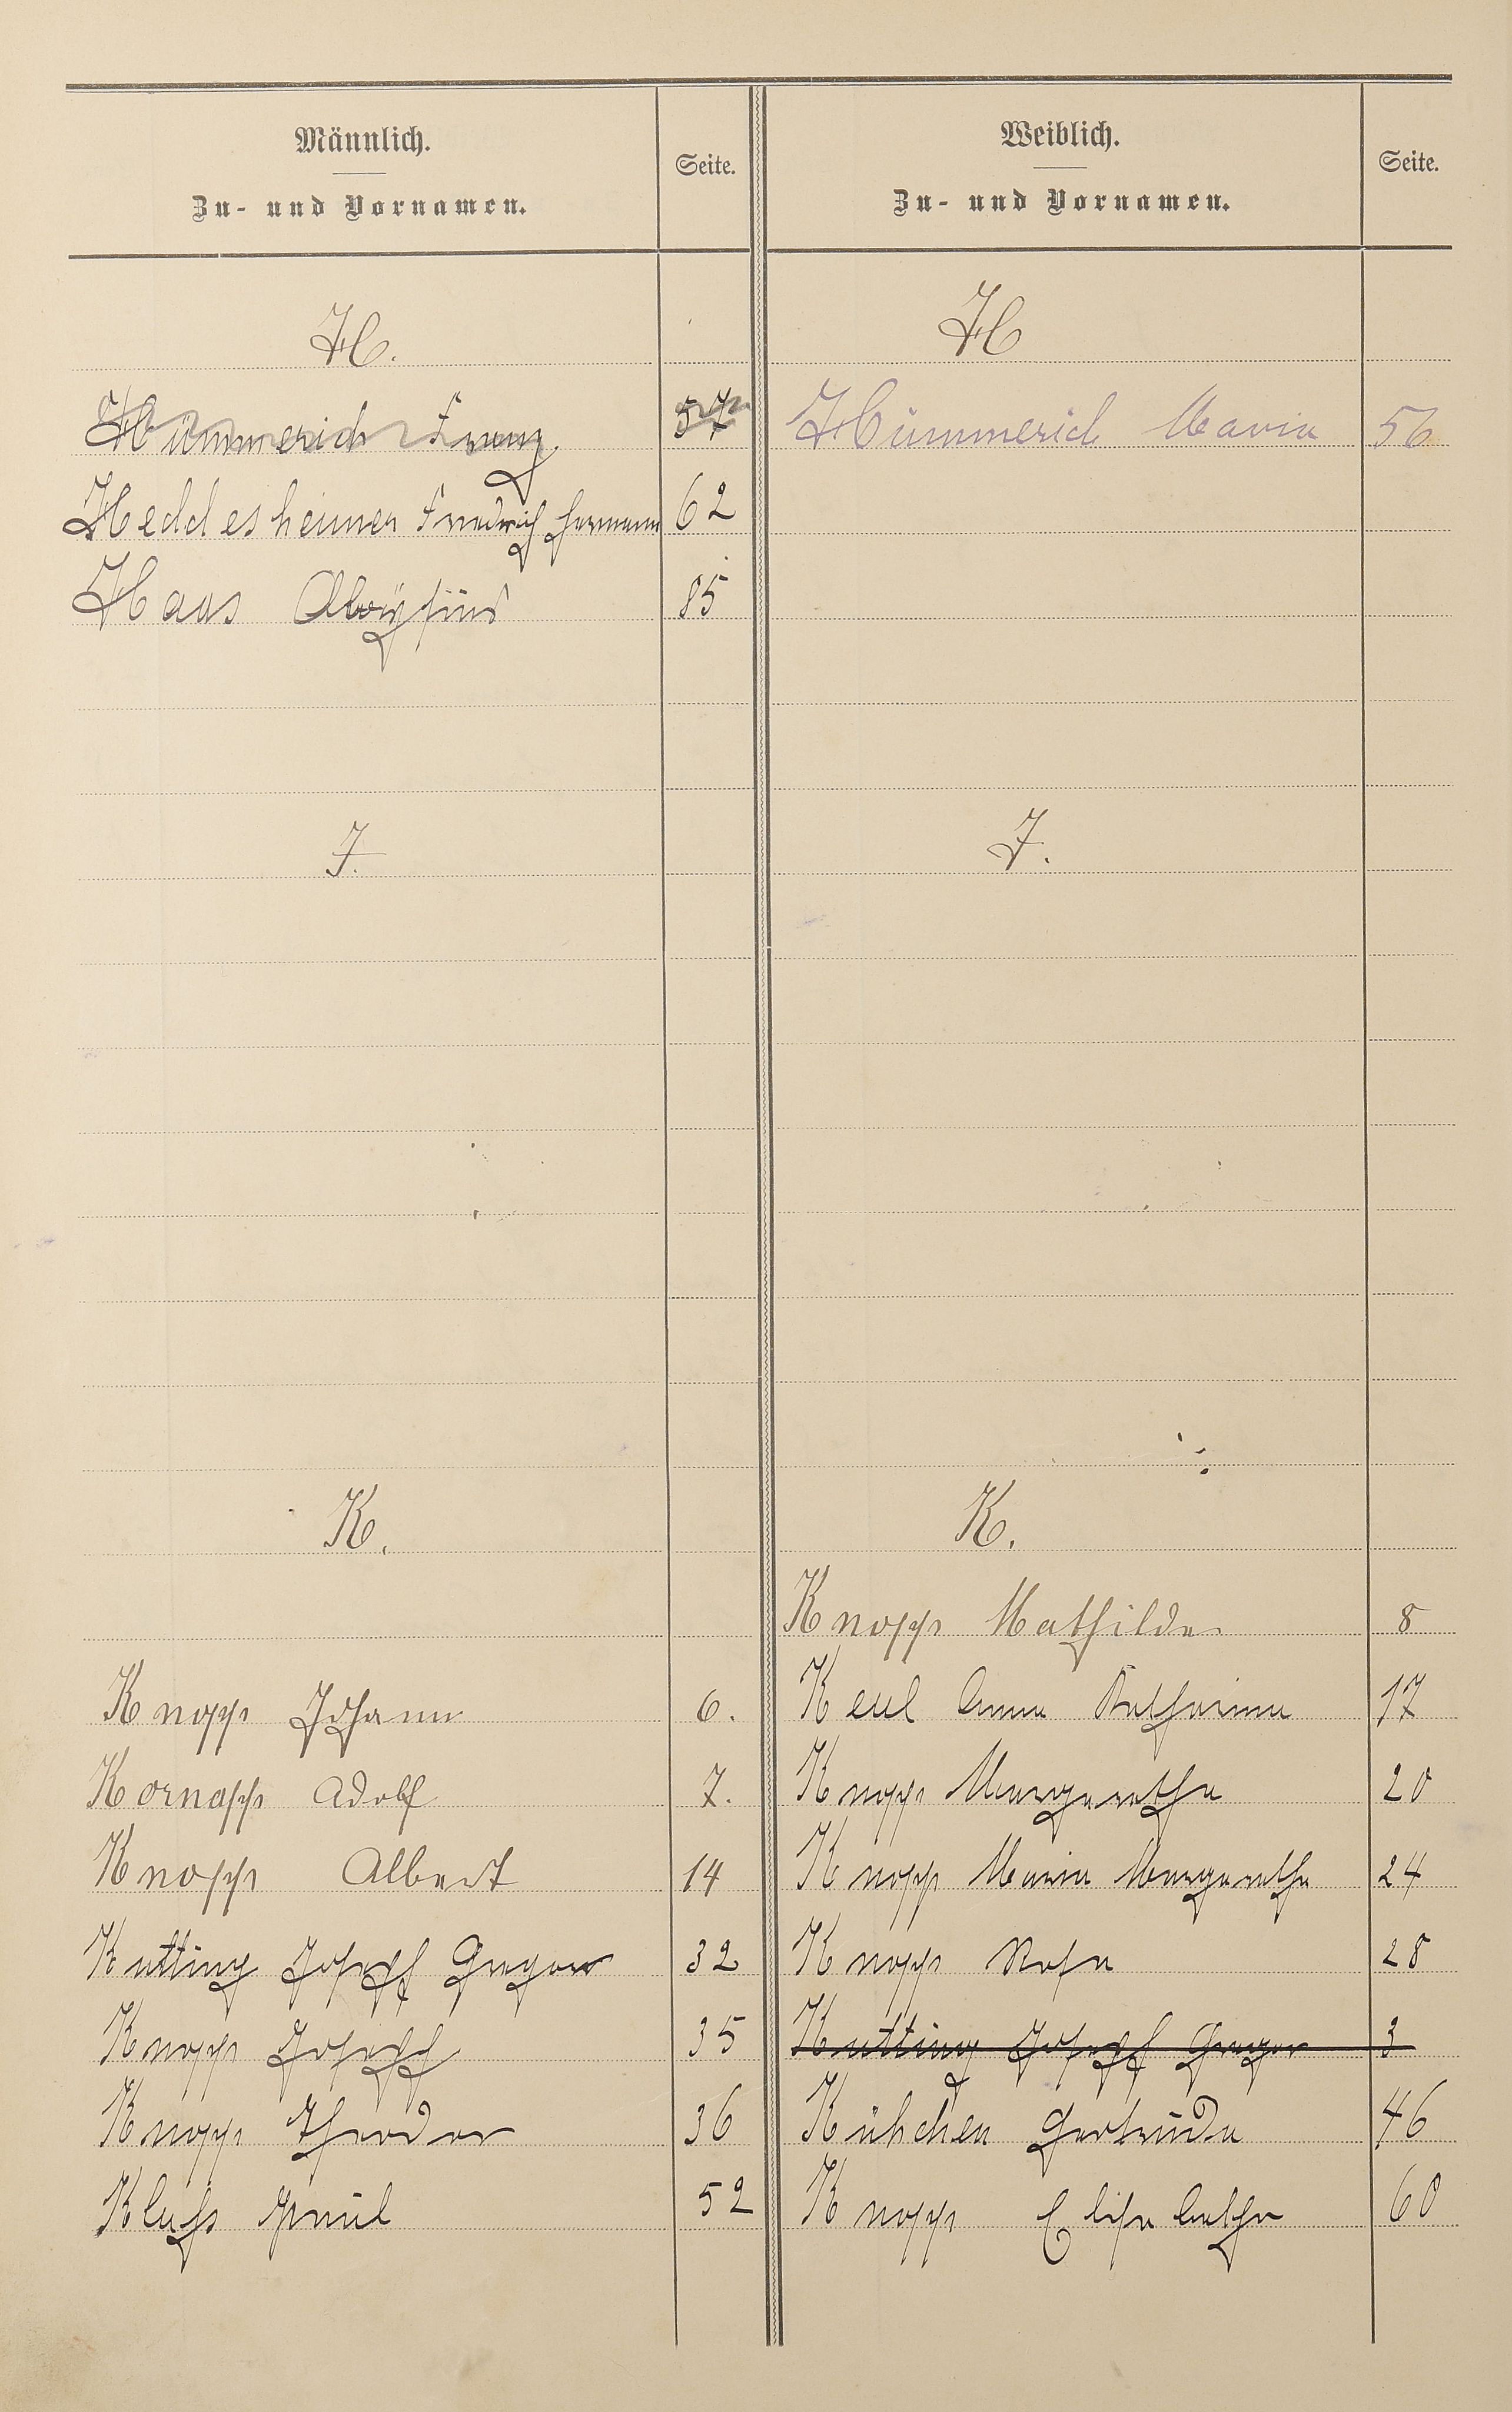 Männlich.
Zu- und Vornamen.
Seite.
Weiblich.
Zu- und Vornamen.
Seite.
H.
H
Hümmerich Franz 57
Hümmerich Maria 56
Heddesheimer Friedrich Hermann 62
Haas Aloysius 85
J.
J.
K.
K.
Knopp Mathilde 8
Knopp Johann 6.
Keul Anna Katharina 17
Kornapp Adolf 7.
Knopp Margaretha 20
Knopp Albert 14
Knopp Maria Margaretha 24
Kutting Joseph Gregor 32
Knopp Rosa 28
Knopp Joseph 35
Kutting Joseph Gregor 3
Knopp Theodor 36
Kühchen Gertruda 46
Paul 52
Knopp Elisabetha 60